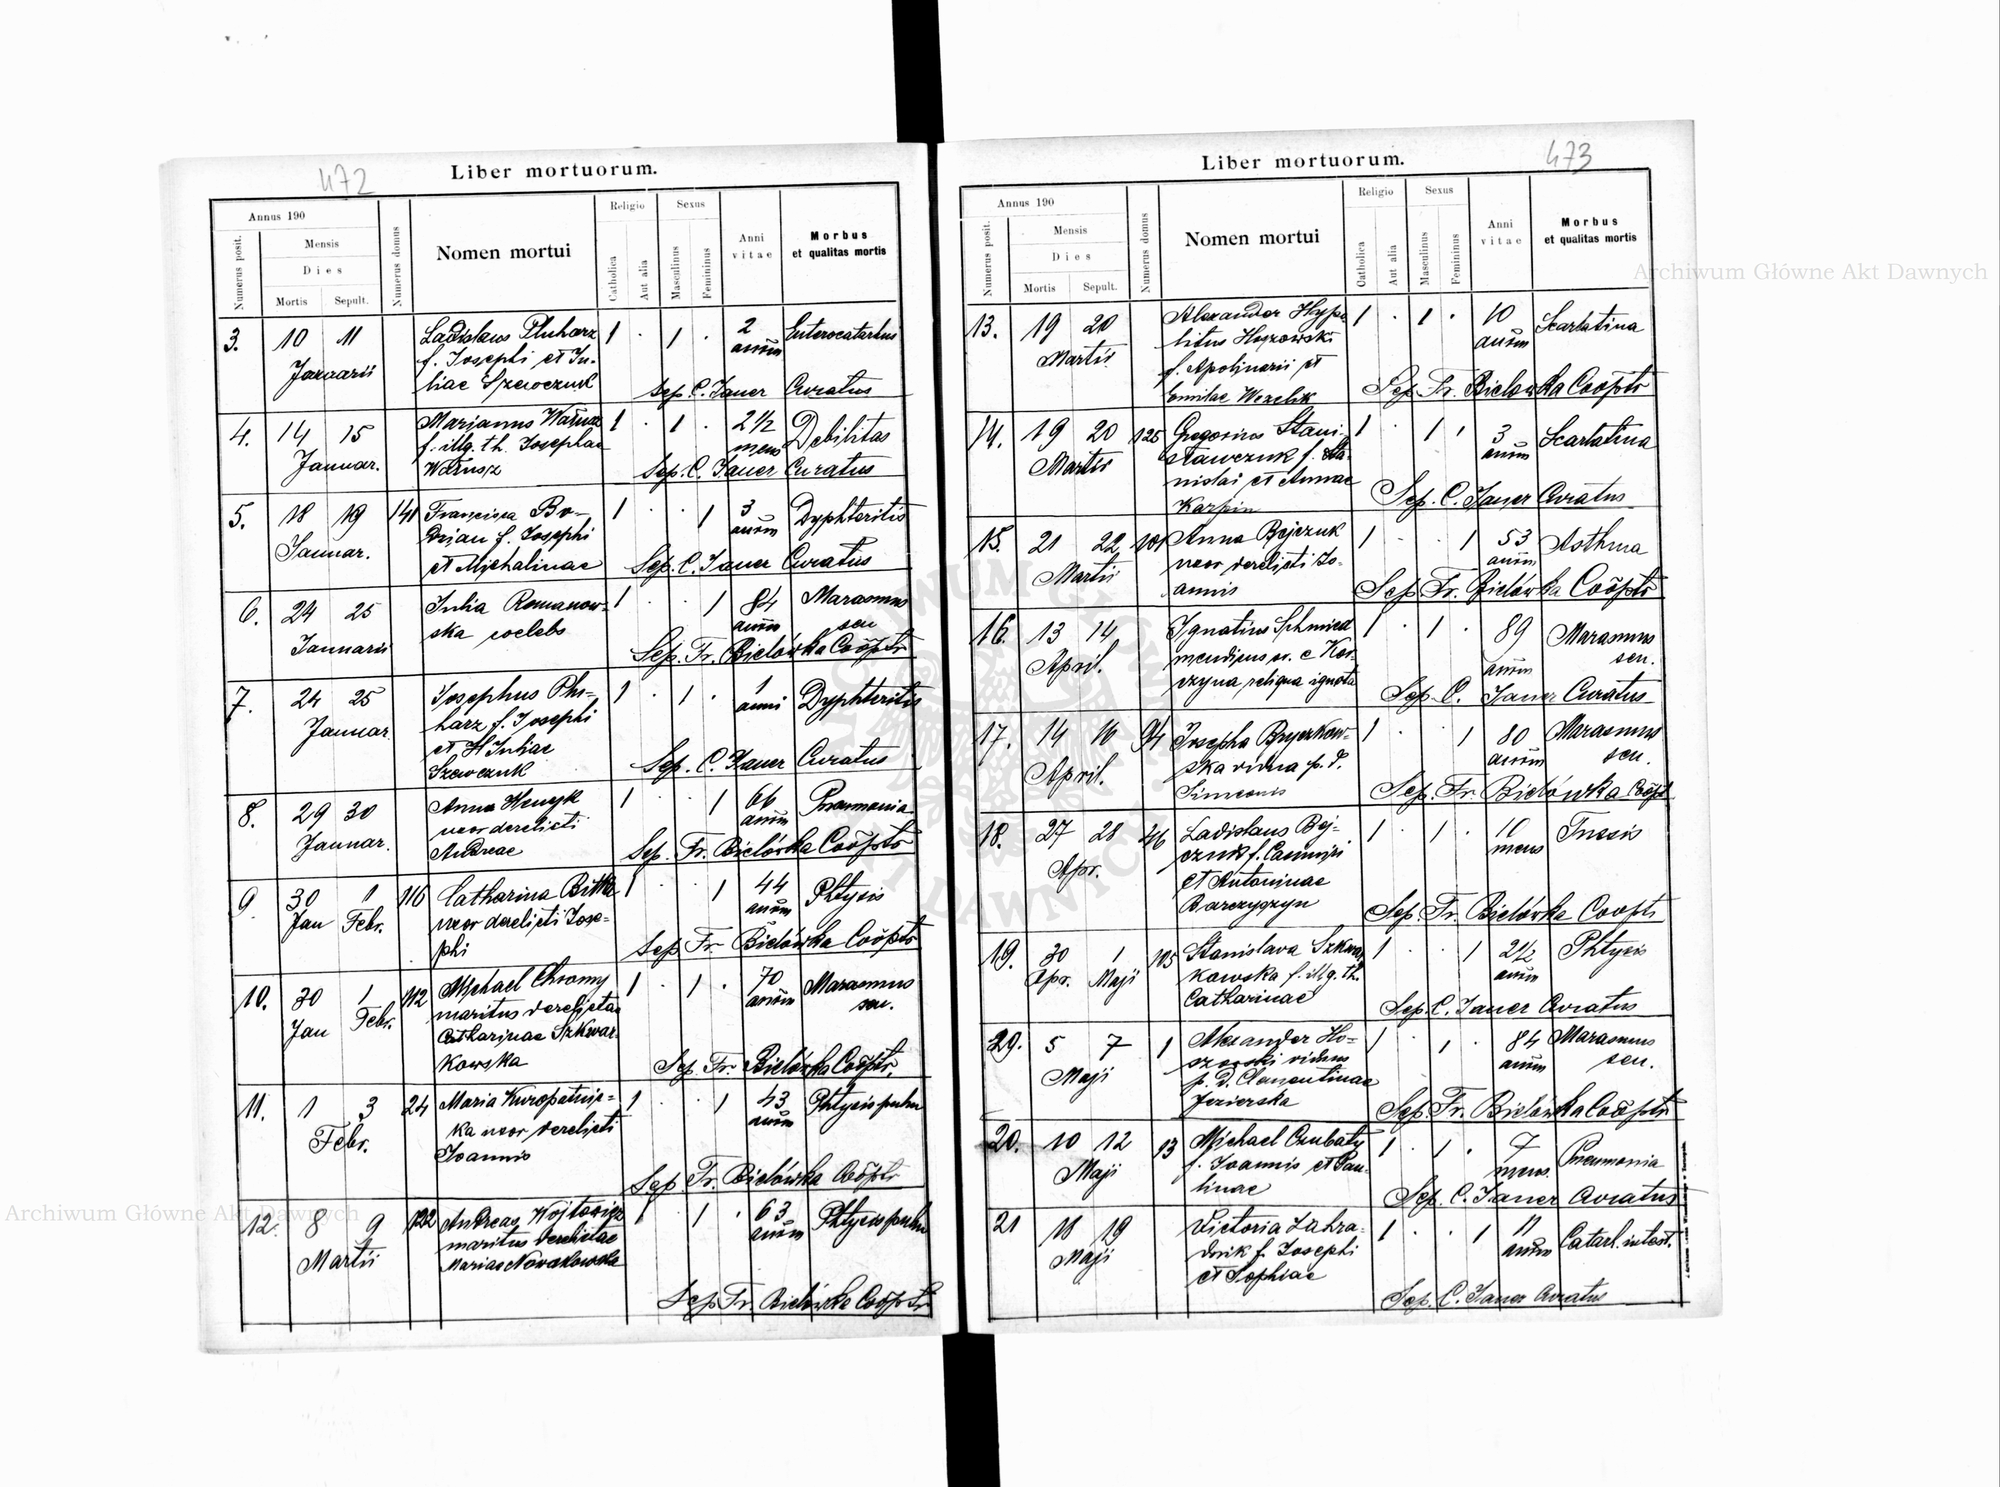 472
Liber mortuorum.
Annus 190
Numerus posit.
Mensis
Dies
Mortis Sepult.
Numerus domus
Nomen mortui
Religio
Catholica
Aut alia
Sexus
Masculinus
Femininus
Anni vitae
Morbus et qualitas mortis
3. 10 11 Ladislaus Pluharz 1 . 1 . 2 Enterocatarhus
Januarii f. Josephi et Ju- annor
liae Szewczuk Sep. C. Jauer Curatus
4. 14 15 Marianus Warusz 1 . 1 . 2 1/2 Debilitas
Januar. f. illg. th. Josephae mens
Warusz Sep. C. Jauer Curatus
5. 18 19 141 Francisca Bo- 1 . . 1 3 Dyphteritis
Januar. drian f. Josephi annor
et Michalinae Sep. C. Jauer Curatus
6. 24 25 Julia Romanow- 1 . . 1 84 Marasmus
Januarii ska coelebs annor sen
Sep. Fr. Bielówka Coöptr
7. 24 25 Josephus Plu- 1 . 1 . 1 Dyphteritis
Januar. harz f. Josephi anni
et Juliae
Szewczuk Sep. C. Jauer Curatus
8. 29 30 Anna 1 . . 1 66 Pneumonia
Januar. uxor derelicti annor
Andreae Sep. Fr. Bielówka Coöptr
9 30 1 116 Catharina Bitka 1 . . 1 44 Phtysis
Jan Febr. uxor derelicti Jose- annor
phi Sep Fr. Bielówka Coöptr
10. 30 1 112 Michael Chromy 1 . 1 . 70 Marasmus
Jan Febr. maritus derelictae annor sen.
Catharinae Szkwar-
kowska Sep. Fr. Bielówka Coöptr.
11. 1 3 24 Maria Kuropatnic- 1 . . 1 43 Phtysis pulm
Febr. ka uxor derelicti annor
Joannis
Sep Fr. Bielówka Coöptr
12. 8 9 122 Andreas Wojtowicz 1 . 1 . 63 Phtysis pulm
Martii maritus derelictae annor
Mariae Nowakowska
Sep Fr. Bielówka Coöptr
473
Liber mortuorum.
Annus 190
Numerus posit.
Mensis
Dies
Mortis Sepult.
Numerus domus
Nomen mortui
Religio
Catholica
Aut alia
Sexus
Masculinus
Femininus
Anni vitae
Morbus et qualitas mortis
13. 19 20 Alexander Hypo- 1 . 1 . 10 Scarlatina
Martii litus annor
f. Apolinarii et
Emilae Wezelik Sep. Fr. Bielowka Coöptr
14. 19 20 125 Gregorius Stani- 1 . 1 . 3 Scarlatina
Martii sławczuk f. Sta- annor
nislai et Annae
Karpin Sep. C. Jauer Curatus
15. 21 22 101 Anna Bojczuk 1 . . 1 53 Asthma
Martii uxor derelicti Jo- annor
annis Sep. Fr. Bielówka Coöptr
16. 13 14 Ignatius Schmied 1 . 1 . 89 Marasmus
April. mendicus or. e Kor- annor sen.
czyna reliqua ignota Sep. C. Jauer Curatus
17. 14 16 94 Josepha 1 . . 1 80 Marasmus
April. ska vidua p. d. annor sen.
Simeonis Sep. Fr. Bielówka Coöpt
18. 27 28 46 Ladislaus Boj- 1 . 1 . 10 Tussis
Apr. czuk f. Casimiri mens
et Antoninae
Barczyszyn Sep. Fr. Bielówka Coöptr
19. 30 1 105 Stanislava Szkwar- 1 . . 1 2 1/2 Phtysis
Apr. Maji kowska f. illg. th. annor
Catharinae Sep. C. Jauer Curatus
29. 5 7 1 Alexander Ho- 1 . 1 . 84 Marasmus
Maji szowski viduus annor sen.
p. d. Clementinae
Jezierska Sep. Fr. Bielówka Coöptr
20. 10 12 13 Michael Czubaty 1 . 1 . 7 Pneumonia
Maji f. Joannis et Pau- mens.
linae Sep. C. Jauer Curatus
21 18 19 Victoria Zahra- 1 . . 1 11 Catarh. intest.
Maji dnik f. Josephi annor
et Sophiae
Sep. C. Jauer Curatus
Archiwum Główne Akt Dawnych
Archiwum Główne Akt Dawnych
ARCHIWUM GŁÓWNE AKT DAWNYCH